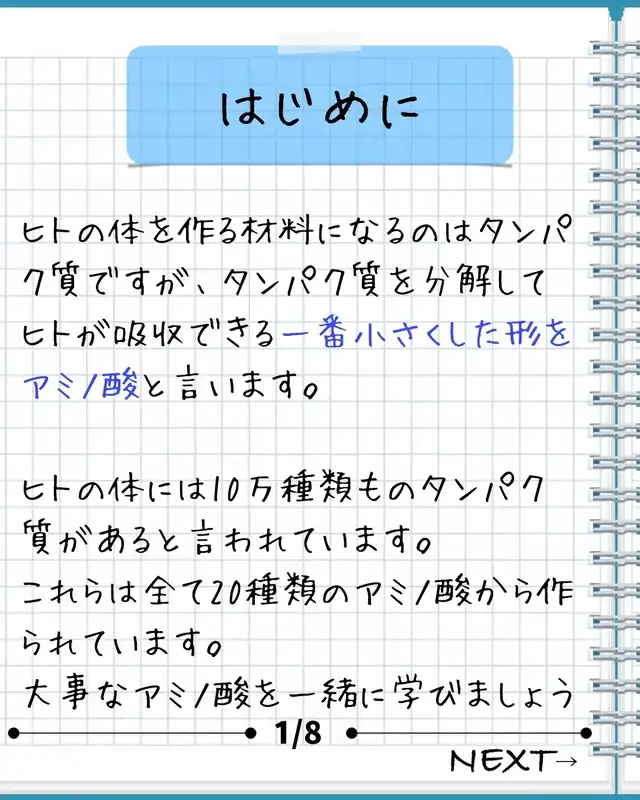 はじめに
ヒトの体を作る材料になるのはタンパ
ク質ですが、タンパク質を分解して
ヒトが吸収できる一番小さくした形を
アミノ酸と言います。
ヒトの体には10万種類ものタンパク
質があると言われています。
これらは全て20種類のアミノ酸から作
られています。
大事なアミノ酸を一緒に学びましょう
1/8
NEXT→